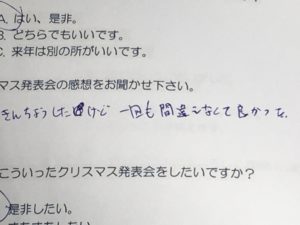 A. はい、是非。
B. どちらでもいいです。
C. 来年は別の所がいいです。
マス発表会の感想をお聞かせ下さい。
きんちょうしたけど 一回も間違えなくて良かった。
こういったクリスマス発表会をしたいですか?
是非したい。